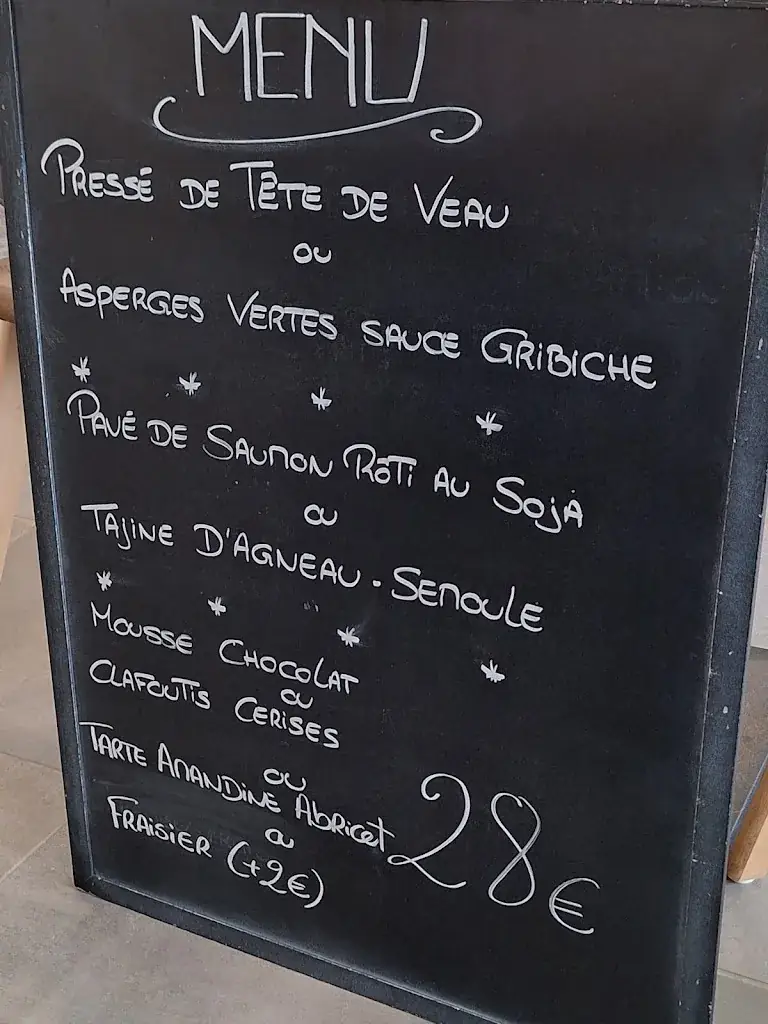 MENU
PRESSÉ DE TÊTE DE VEAU
OU
ASPERGES VERTES SAUCE GRIBICHE
* * * *
PAVÉ DE SAUMON RÔTI AU SOJA
OU
TAJINE D'AGNEAU - SEMOULE
* * * *
MOUSSE CHOCOLAT
OU
CLAFOUTIS CERISES
OU
TARTE AMANDINE ABRICOT
OU
FRAISIER (+2€)
28€